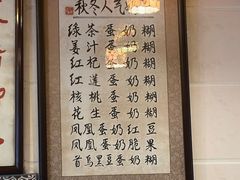 秋冬人气
绿茶蛋奶糊
姜汁蛋奶糊
红杞蛋奶糊
红莲蛋奶糊
核桃蛋奶糊
花生蛋奶糊
凤凰蛋奶红豆
凤凰蛋奶脆果
首乌黑豆蛋奶糊